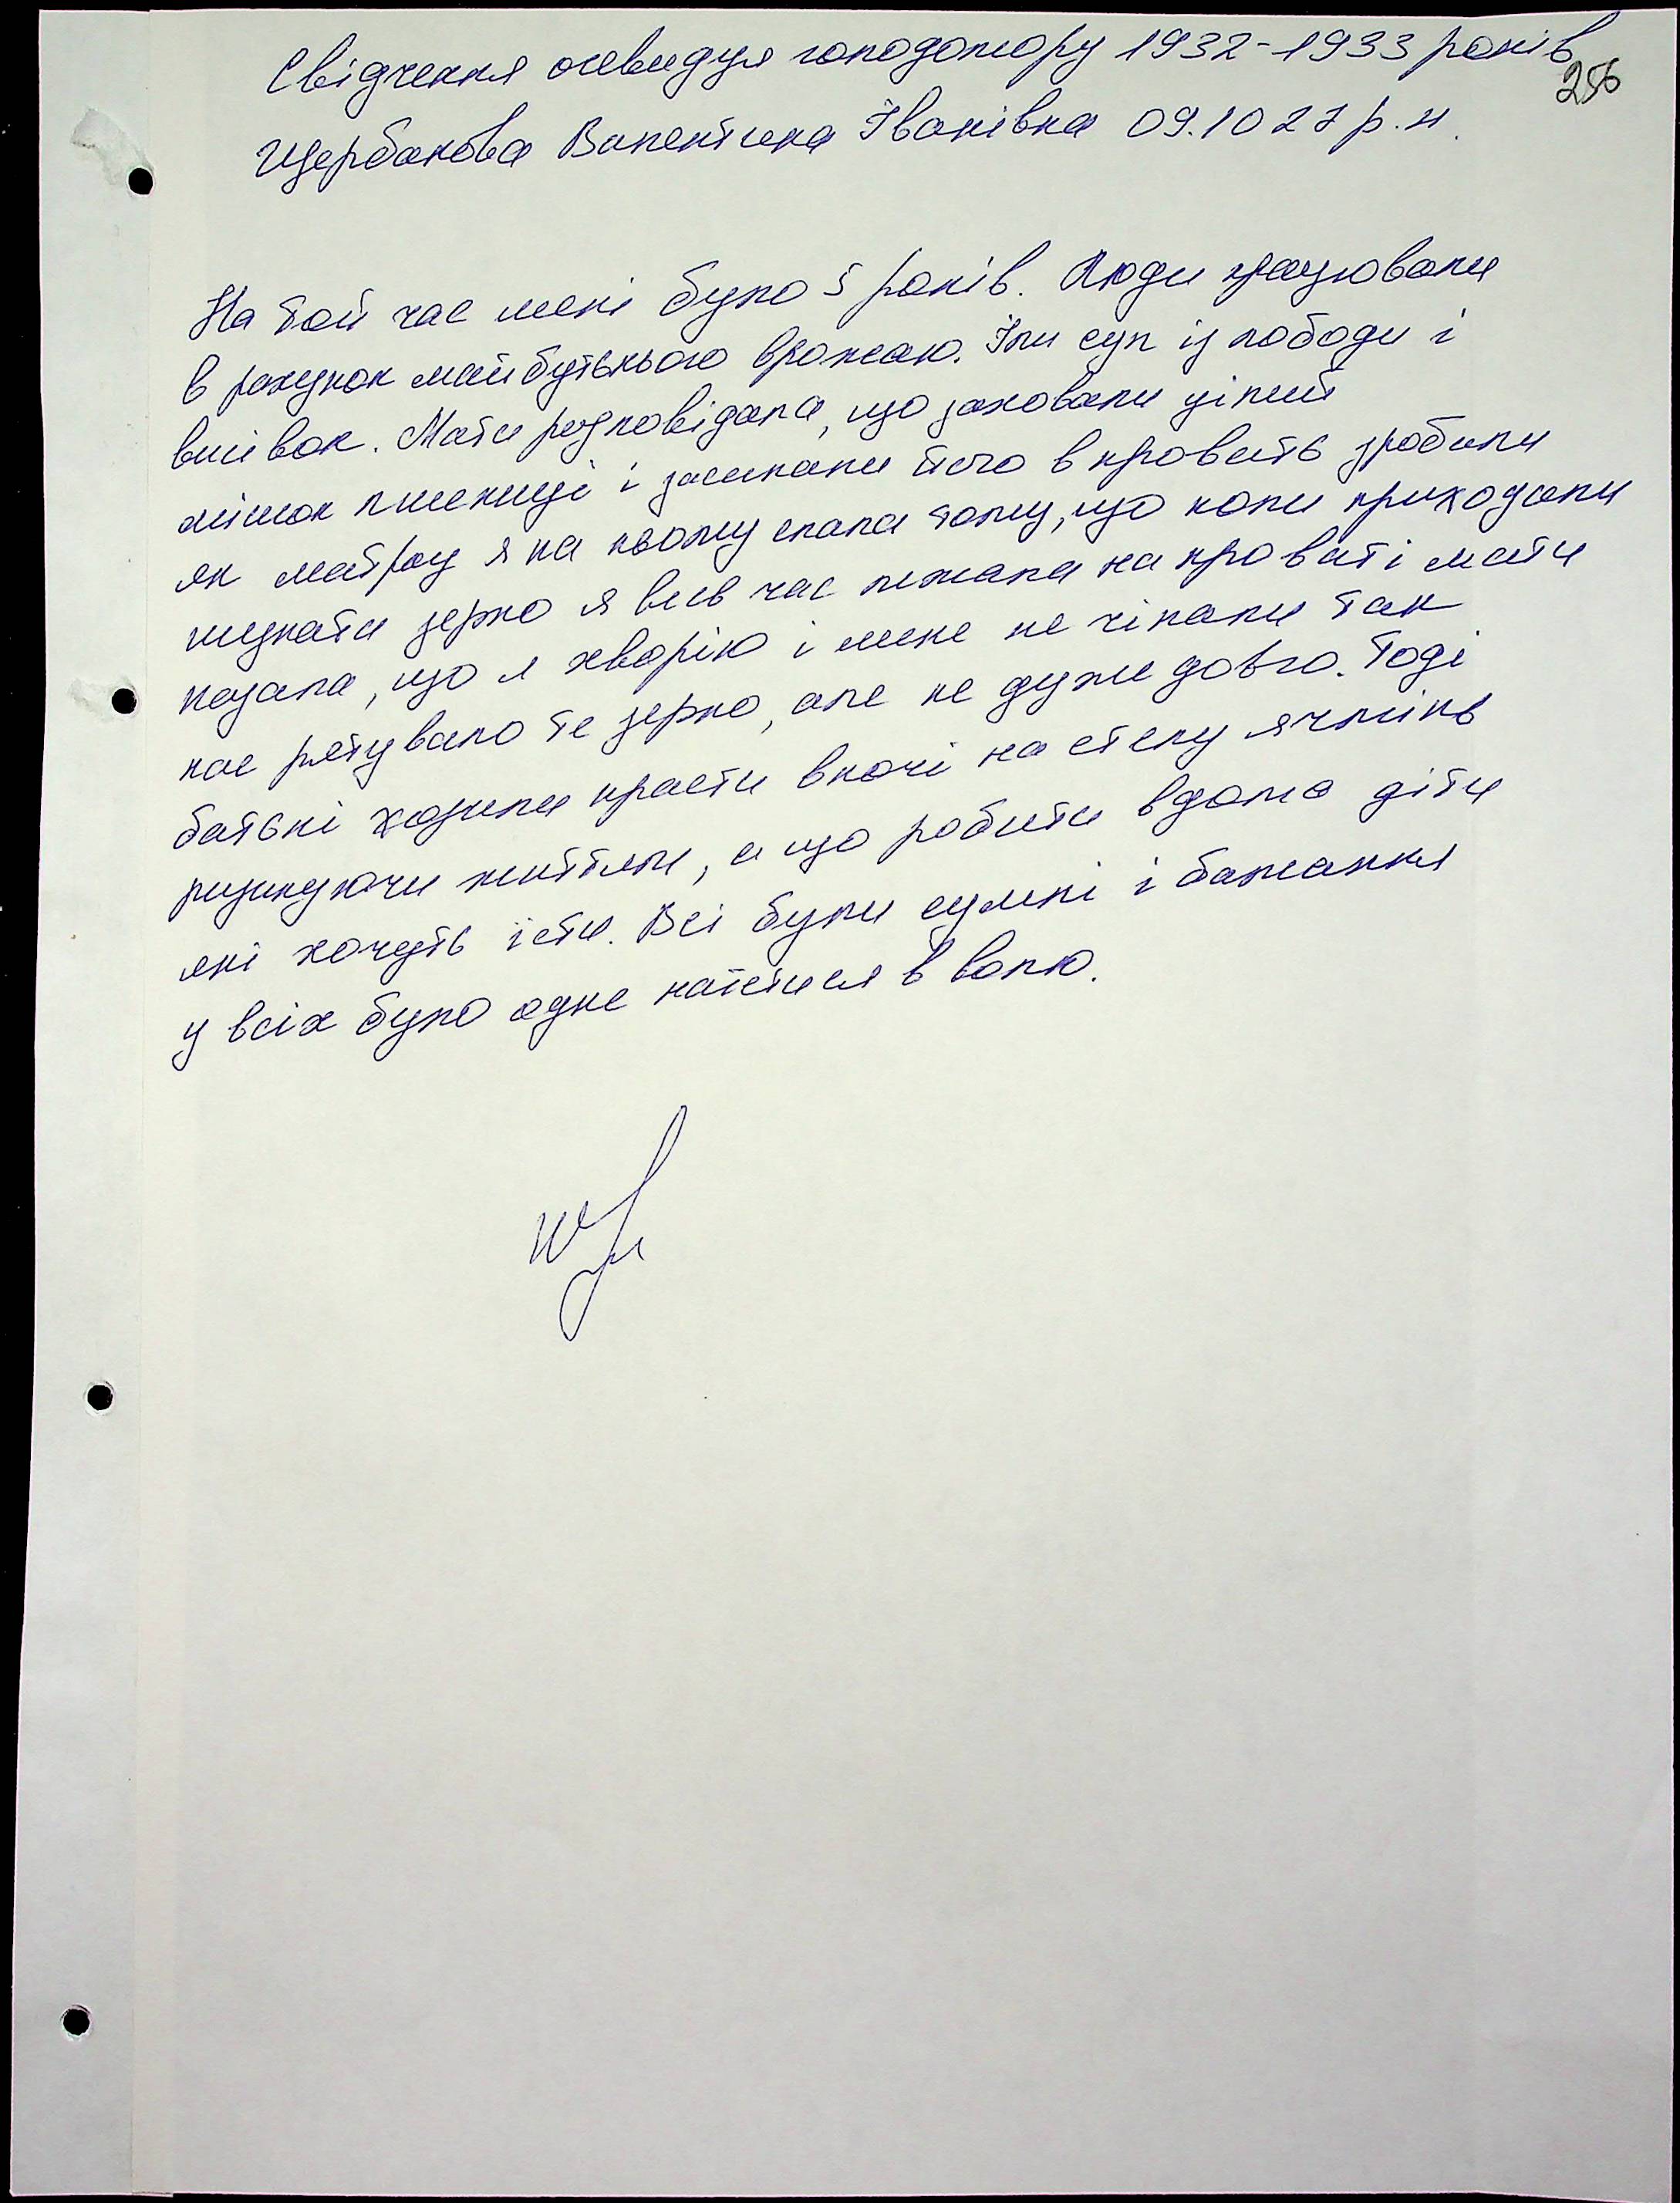 Свідчення очевидця голодомору 1932-1933 років
256
Щербакова Валентина Іванівна 09.10 27 р.н.
На той час мені було 5 років. Люди працювали
в рахунок майбутнього врожаю. Їли суп із лободи і
висівок. Мати розповідала, що заховали цілий
мішок пшениці і засипали його в кровать зробили
як матрац я на ньому спала тому, що коли приходили
шукати зерно я весь час лежала на кроваті мати
казала, що я хворію і мене не чіпали так
нас рятувало те зерно, але не дуже довго. Тоді
батькі ходили красти вночі на степу ячмінь
ризикуючи життям, а що робити вдома діти
які хочуть їсти. Всі були сумні і бажання
у всіх було одне наїстися в волю.